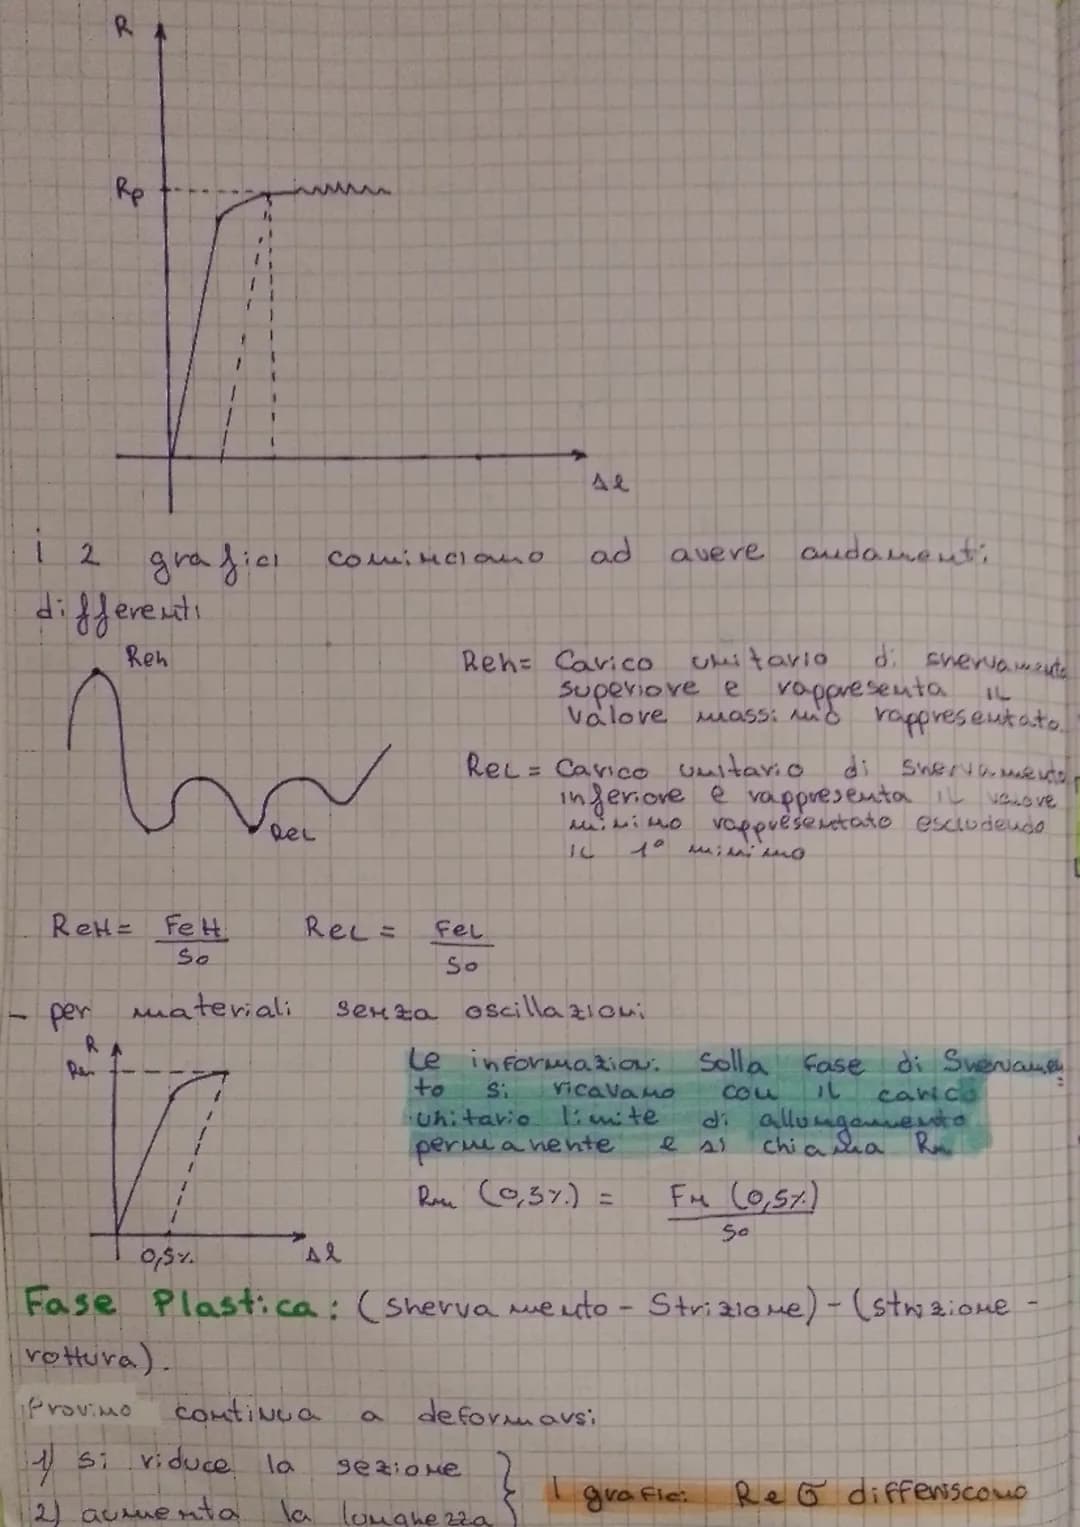 R
Rp
Δl
i 2 grafici cominciano ad avere andamenti
differenti
Reh
Reh= Carico unitario di snervamento
superiore e rappresenta il
valore massimo rappresentato.
ReL = Carico unitario di snervamento
inferiore e rappresenta il valore
minimo rappresentato escludendo
il 1° minimo
ReL
ReH = FeH/So ReL = FeL/So
- per materiali senza oscillazioni
R
Δl
Le informazioni Solla fase di Snervamen
to si ricavano con il carico
unitario limite di allungamento
permanente e si chiama Rm
Rm (0,5%) = FM (0,5%)/So
0,5%
Fase Plastica: (snervamento - Strizione) - (strizione -
rottura).
Provino continua a deformarsi
1) si riduce la sezione
2) aumenta la lunghezza
I grafici R e σ differiscono